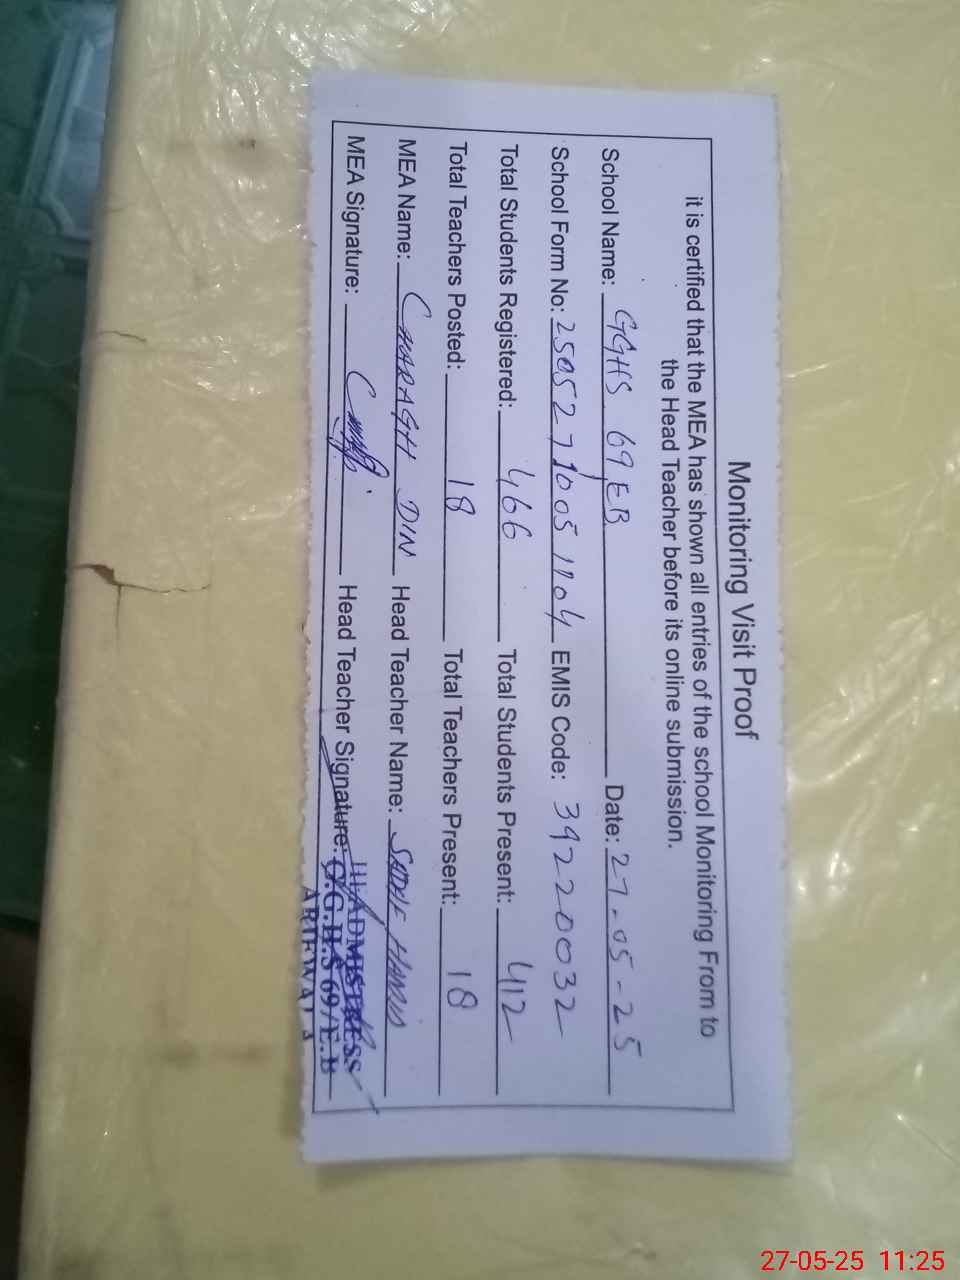 Monitoring Visit Proof
it is certified that the MEA has shown all entries of the school Monitoring From to
the Head Teacher before its online submission.
School Name: GGHS 69/EB Date: 27-05-25
School Form No: 25052710051104 EMIS Code: 39220032
Total Students Registered: 466 Total Students Present: 412
Total Teachers Posted: 18 Total Teachers Present: 18
MEA Name: CHARAGH DIN Head Teacher Name:
MEA Signature: Head Teacher Signature:
HEADMISTRESS
G.G.H.S 69/E.B
ARIFWALA
27-05-25 11:25